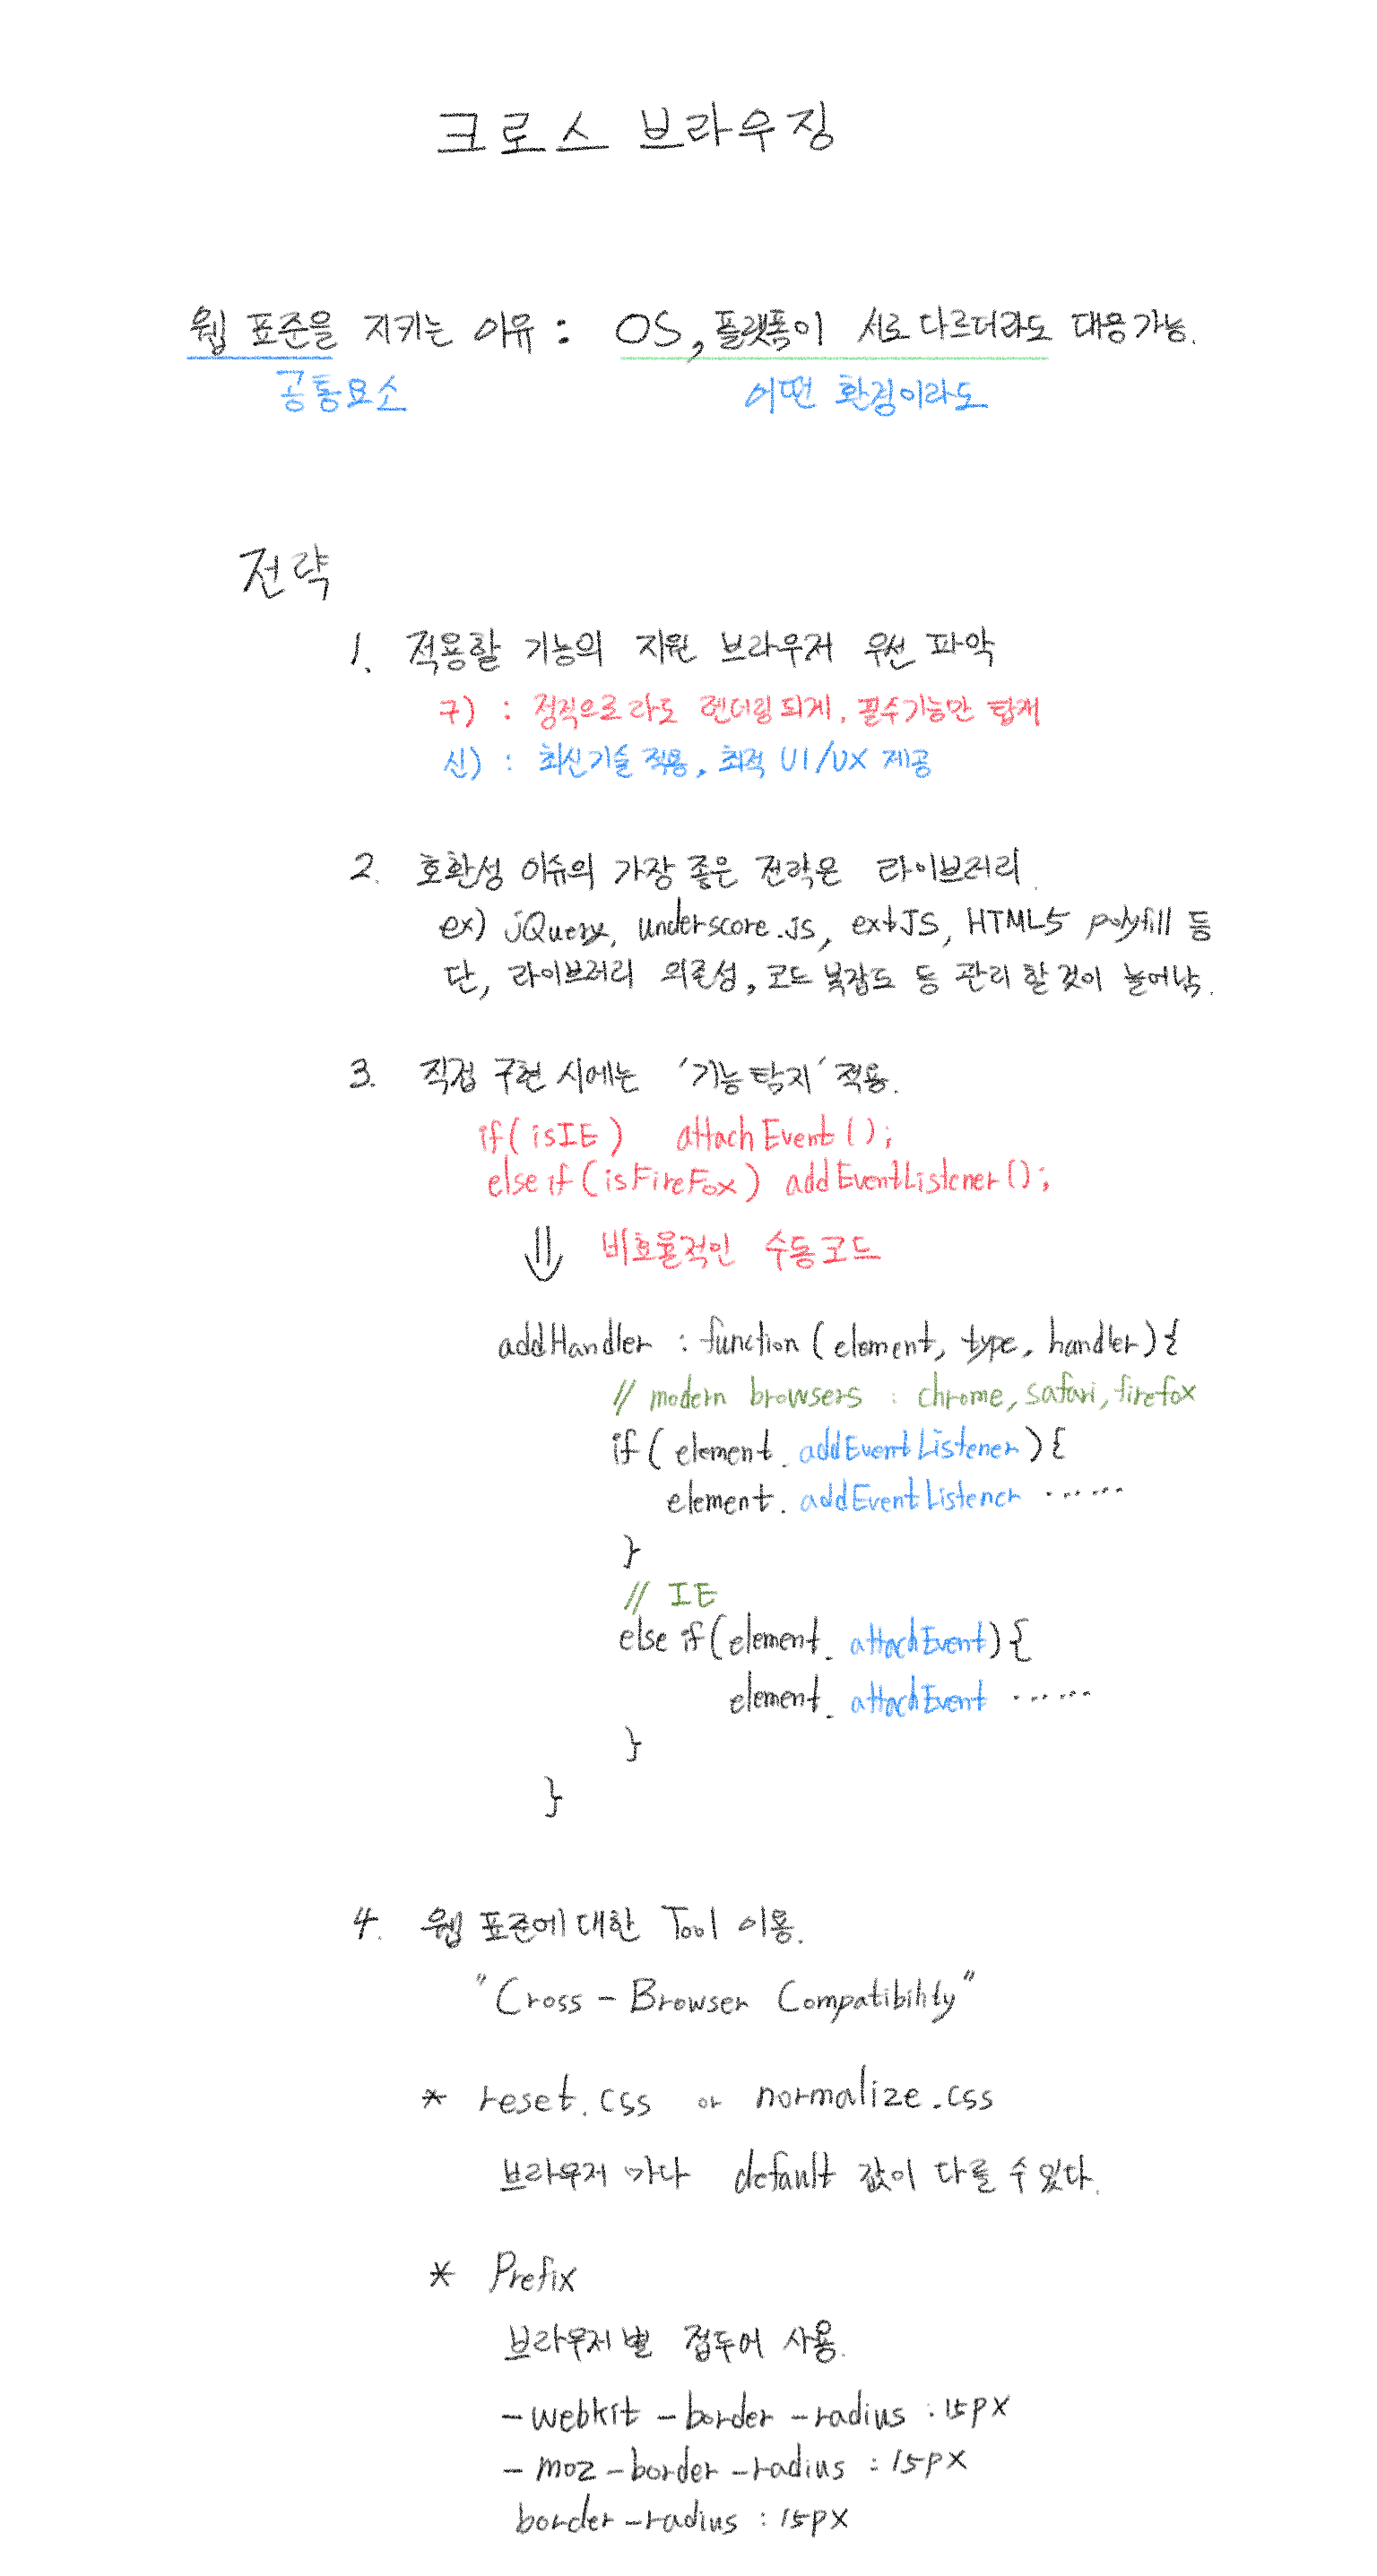 크로스 브라우징
웹 표준을 지키는 이유 : OS, 플랫폼이 서로 다르더라도 대응가능.
공통요소 어떤 환경이라도
전략
1. 적용할 기능의 지원 브라우저 우선 파악
구) : 정적으로라도 렌더링되게, 필수기능만 탑재
신) : 최신기술 적용, 최적 UI/UX 제공
2. 호환성 이슈의 가장 좋은 전략은 라이브러리.
ex) jQuery, underscore.js, extJS, HTML5 polyfill 등
단, 라이브러리 의존성, 코드 복잡도 등 관리 할 것이 늘어남.
3. 직접 구현 시에는 '기능탐지' 적용.
if(isIE) attachEvent();
else if(isFireFox) addEventListener();
⇓ 비효율적인 수동코드
addHandler : function(element, type, handler){
// modern browsers : chrome, safari, firefox
if(element.addEventListener){
element.addEventListener ......
}
// IE
else if(element.attachEvent){
element.attachEvent ......
}
}
4. 웹 표준에 대한 Tool 이용.
"Cross-Browser Compatibility"
* reset.css or normalize.css
브라우저 마다 default 값이 다를 수 있다.
* Prefix
브라우저별 접두어 사용.
-webkit-border-radius : 15px
-moz-border-radius : 15px
border-radius : 15px